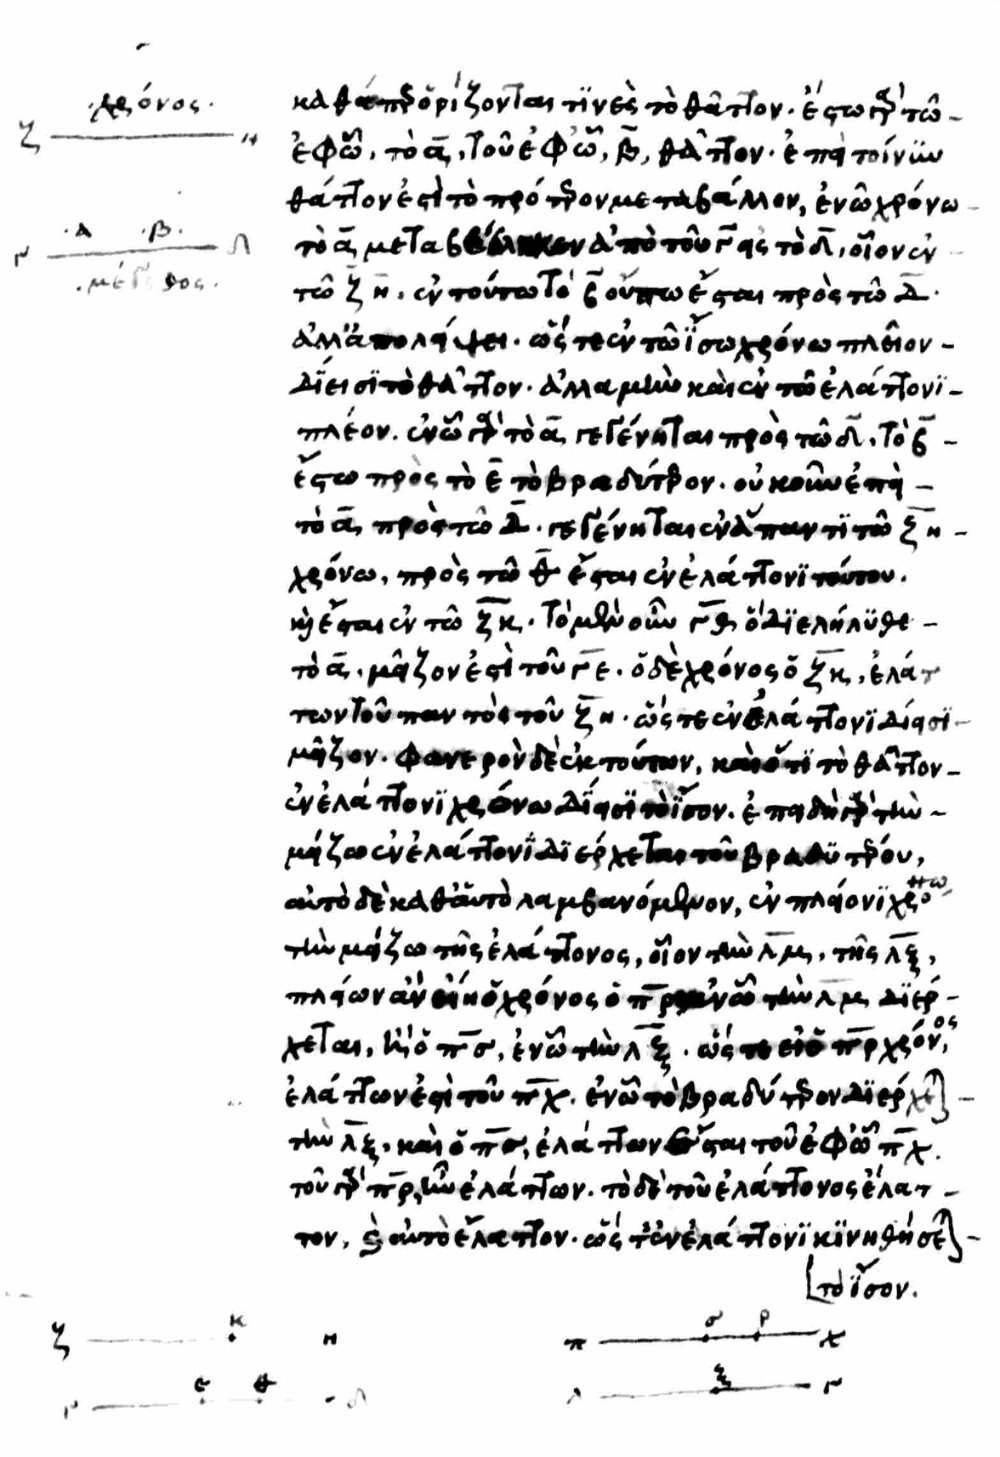 ·χρόνος·
ζ η
·α ·β·
γ δ
·μέγεθος·
καθάπερ ὁρίζονταί τϊνες τὸ θᾶττον· ἔστω γὰρ τῶ
ἐφῶ, τὸ α̅, τοῦ ἐφ' ὧ, β̅, θᾶττον· ἐπεὶ τοίνυν
θάττον ἐστὶ τὸ πρότερον μεταβάλλον, ἐν ὧ χρόνω
τὸ α̅ μεταβέβληκεν ἀπὸ τοῦ γ̅ εἰς τὸ δ̅, οἷον ἐν
τῶ ζ̅ η̅, ἐν τούτω τὸ β̅ οὔπω ἔσται πρὸς τῶ δ̅·
ἀλλ' ἀπολείψει· ὥστε ἐν τῶ ἴσω χρόνω πλεῖον
δίεισϊ τὸ θᾶττον· ἀλλα μὴν καὶ ἐν τῶ ἐλάττονϊ
πλέον· ἐν ὧ γὰρ τὸ α̅ γεγένηται πρὸς τῶ δ̅, τὸ β̅
ἔστω πρὸς τὸ ε̅ τὸ βραδύτερον· οὐκοῦν ἐπεὶ
τὸ α̅ πρὸς τῶ δ̅ γεγένηται ἐν ἅπαντϊ τῶ ζ̅η̅
χρόνω, πρὸς τῶ θ̅ ἔσται ἐν ἐλάττονϊ τούτου.
κὴ ἔσται ἐν τῶ ζ̅κ̅· τὸ μὲν οὖν γ̅θ̅ ὃ δϊελήλϋθε
τὸ α̅, μεῖζον ἐστὶ τοῦ γ̅ε̅· ὁ δὲ χρόνος ὁ ζ̅κ̅, ἐλάτ
των τοῦ παντὸς τοῦ ζ̅η̅· ὥστε ἐν ἐλάττονϊ δίεισϊ
μεῖζον· φανερὸν δὲ ἐκ τούτων, καὶ ὅτϊ τὸ θᾶττον
ἐν ἐλάττονϊ χρόνω δίεισϊ τὸ ἴσον· ἐπεὶ δὴ γὰρ τὴν
μείζω ἐν ἐλάττονϊ δϊέρχεται τοῦ βραδϋτέρου,
αὐτὸ δὲ καθ' αὑτὸ λαμβανόμενον, ἐν πλείονϊ χρόνω
τὴν μείζω τῆς ἐλάττονος, οἷον τὴν λ̅μ̅, τῆς λ̅ξ̅,
πλείων ἂν εἴη ὁ χρόνος ὁ π̅ρ̅ ἐν ὧ τὴν λ̅μ̅ δϊέρ
χεται, ἢ ὁ π̅σ̅, ἐν ὧ τὴν λ̅ξ̅· ὥστε εἰ ὁ π̅ρ̅ χρόνος,
ἐλάττων ἐστὶ τοῦ π̅χ̅, ἐν ὧ τὸ βραδύτερον δϊέρχε
τὴν λ̅ξ̅, καὶ ὁ π̅σ̅, ἐλάττων ἔσται τοῦ ἐφ' ὧ π̅χ̅.
τοῦ γὰρ π̅ρ̅, ἦν ἐλάττων· τὸ δὲ τοῦ ἐλάττονος ἔλατ
τον, ϗ αὐτὸ ἔλαττον· ὥστ' ἐν ἐλάττονϊ κϊνηθήσε
τὸ ἴσον.
ζ κ η
γ ε θ δ
π σ ρ χ
λ ξ γ